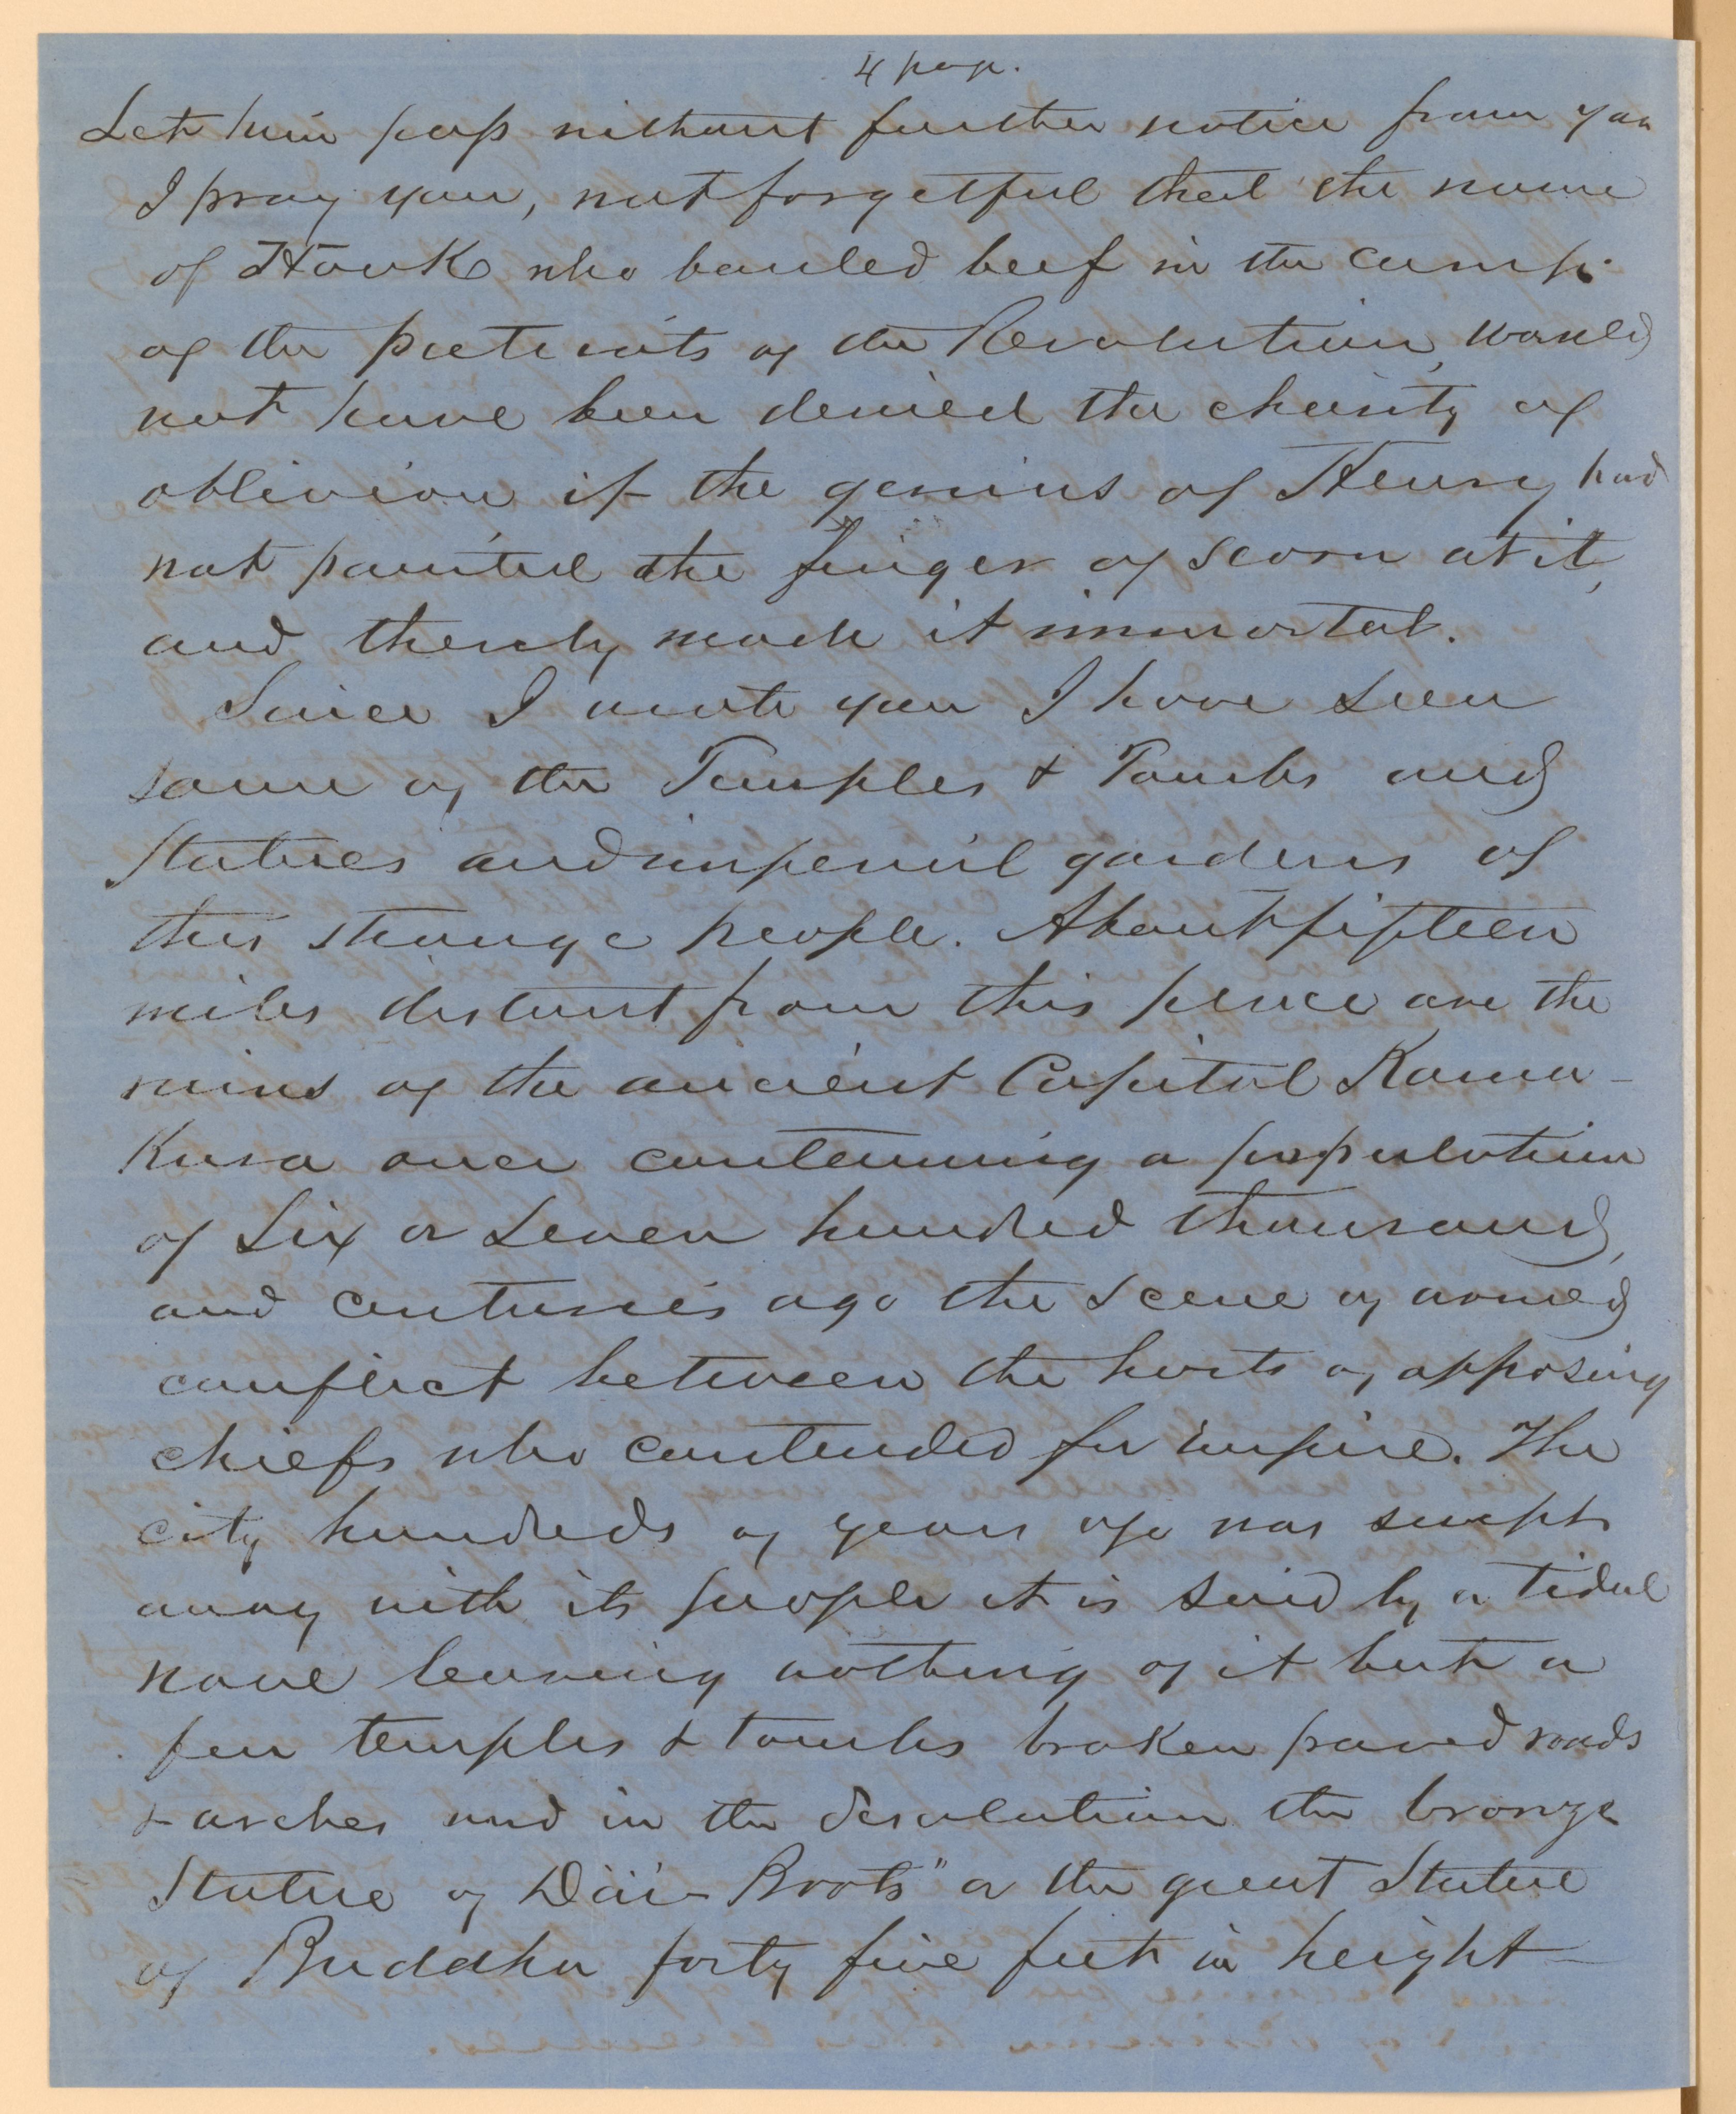 4 page.
Let him pass without further notice from you
I pray you, not forgetful that the name
of Hook who bauled beef in the camp
of the patriots of the Revolution, would
not have been denied the charity of
oblivion if the genius of Henry had
not pointed the finger of scorn at it,
and thereby made it immortal.
Since I wrote you I have seen
some of the Temples & Tombs and
Statues and imperial gardens of
this strange people. About fifteen
miles distant from this place are the
ruins of the ancient Capital Kama-
Kura once containing a population
of Six or Seven hundred thousand,
and centuries ago the scene of armed
conflict between the hosts of opposing
chiefs who contended for empire. The
city hundreds of years ago was swept
away with its people it is said by a tidal
wave leaving nothing of it but a
few temples & tombs broken paved roads
& arches and in the desolation the bronze
Statue of Dai-Boots" or the great Statue
of Buddha forty five feet in height—